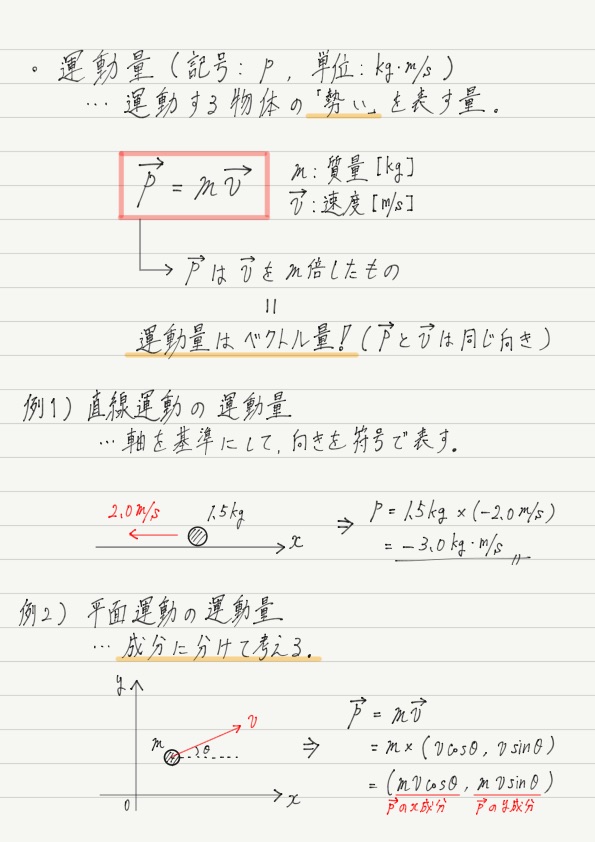 。運動量（記号：p，単位：kg・m/s）
… 運動する物体の「勢い」を表す量。
p⃗ = mv⃗
m：質量［kg］
v⃗：速度［m/s］
p⃗ は v⃗ を m倍したもの
＝
運動量はベクトル量！（p⃗ と v⃗ は同じ向き）
例1）直線運動の運動量
… 軸を基準にして，向きを符号で表す。
2.0m/s
1.5kg
x
⇒ p = 1.5kg ×（−2.0m/s）
= −3.0kg・m/s
例2）平面運動の運動量
… 成分に分けて考える。
y
m
v
θ
0
x
p⃗ = mv⃗
⇒ = m×（vcosθ, vsinθ）
=（mvcosθ, mvsinθ）
p⃗のx成分 p⃗のy成分